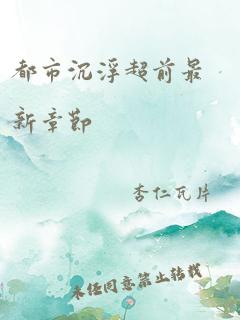 都市沉浮超前最
新章节
杏仁瓦片
未经同意禁止转载